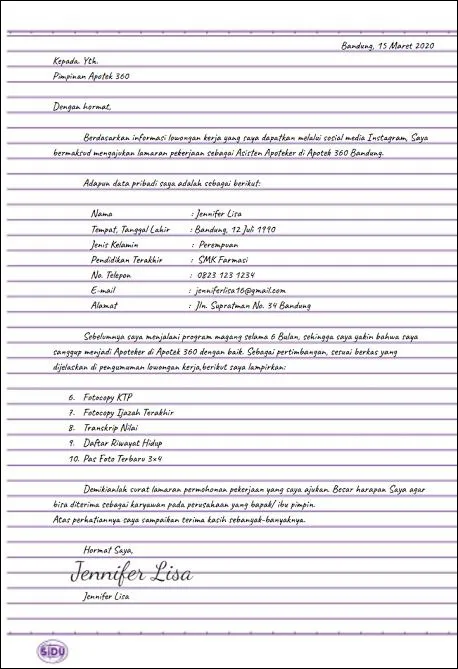 Bandung, 15 Maret 2020
Kepada. Yth.
Pimpinan Apotek 360
Dengan hormat,
Berdasarkan informasi lowongan kerja yang saya dapatkan melalui sosial media Instagram, Saya
bermaksud mengajukan lamaran pekerjaan sebagai Asisten Apoteker di Apotek 360 Bandung.
Adapun data pribadi saya adalah sebagai berikut:
Nama : Jennifer Lisa
Tempat, Tanggal Lahir : Bandung, 12 Juli 1990
Jenis Kelamin : Perempuan
Pendidikan Terakhir : SMK Farmasi
No. Telepon : 0823 123 1234
E-mail : jenniferlisa16@gmail.com
Alamat : Jln. Supratman No. 34 Bandung
Sebelumnya saya menjalani program magang selama 6 Bulan, sehingga saya yakin bahwa saya
sanggup menjadi Apoteker di Apotek 360 dengan baik. Sebagai pertimbangan, sesuai berkas yang
dijelaskan di pengumuman lowongan kerja,berikut saya lampirkan:
6. Fotocopy KTP
7. Fotocopy Ijazah Terakhir
8. Transkrip Nilai
9. Daftar Riwayat Hidup
10. Pas Foto Terbaru 3x4
Demikianlah surat lamaran permohonan pekerjaan yang saya ajukan. Besar harapan Saya agar
bisa diterima sebagai karyawan pada perusahaan yang bapak/ ibu pimpin.
Atas perhatiannya saya sampaikan terima kasih sebanyak-banyaknya.
Hormat Saya,
Jennifer Lisa
Jennifer Lisa
SIDU